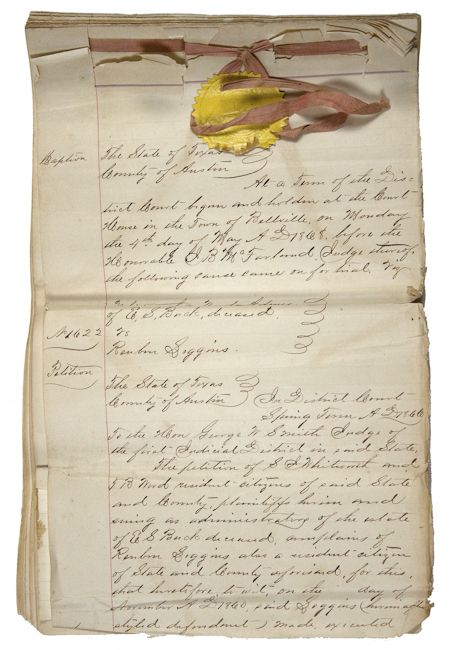 Caption
The State of Texas
County of Austin
At a Term of the Dis-
trict Court began and holden at the Court
House in the Town of Bellville, on Monday
the 4th day of May A D 1868. before the
Honorable I B McFarland, Judge thereof,
the following cause came on for trial, Viz
of E. S. Buck, deceased,
No 1622 vs
Reubin Scoggins.
Petition
The State of Texas
County of Austin
In District Court
Spring Term A D 1866
To the Hon George W Smith Judge of
the first Judicial District in said State,
The petition of S Whitworth and
J B resident citizens of said State
and County, plaintiffs herein and
suing as administrators of the estate
of E S Buck deceased, complains of
Reubin Scoggins also a resident citizen
of State and County aforesaid, for this,
that heretofore, to wit, on the day of
November A D 1860, said Scoggins
styled defendant) made, executed